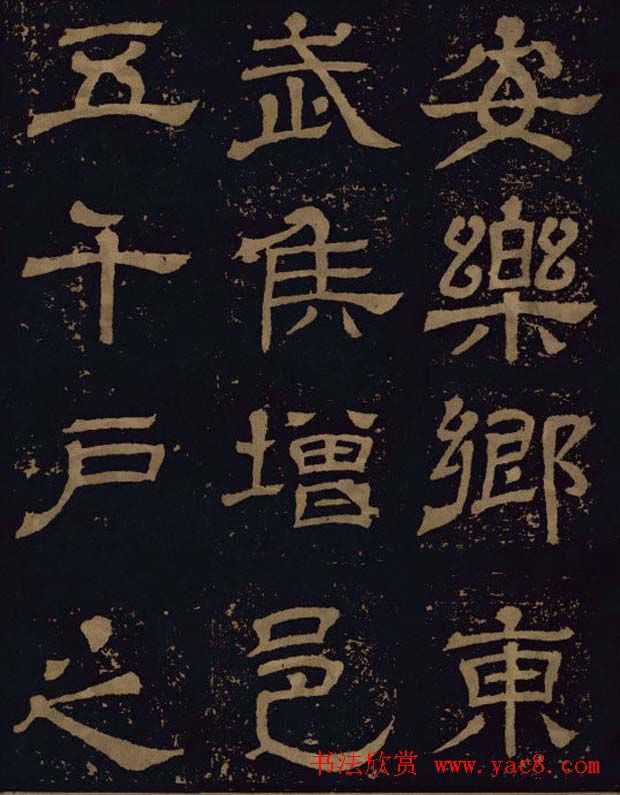 安樂鄉東
武侯增邑
五千戶之
书法欣赏 www.yac8.com